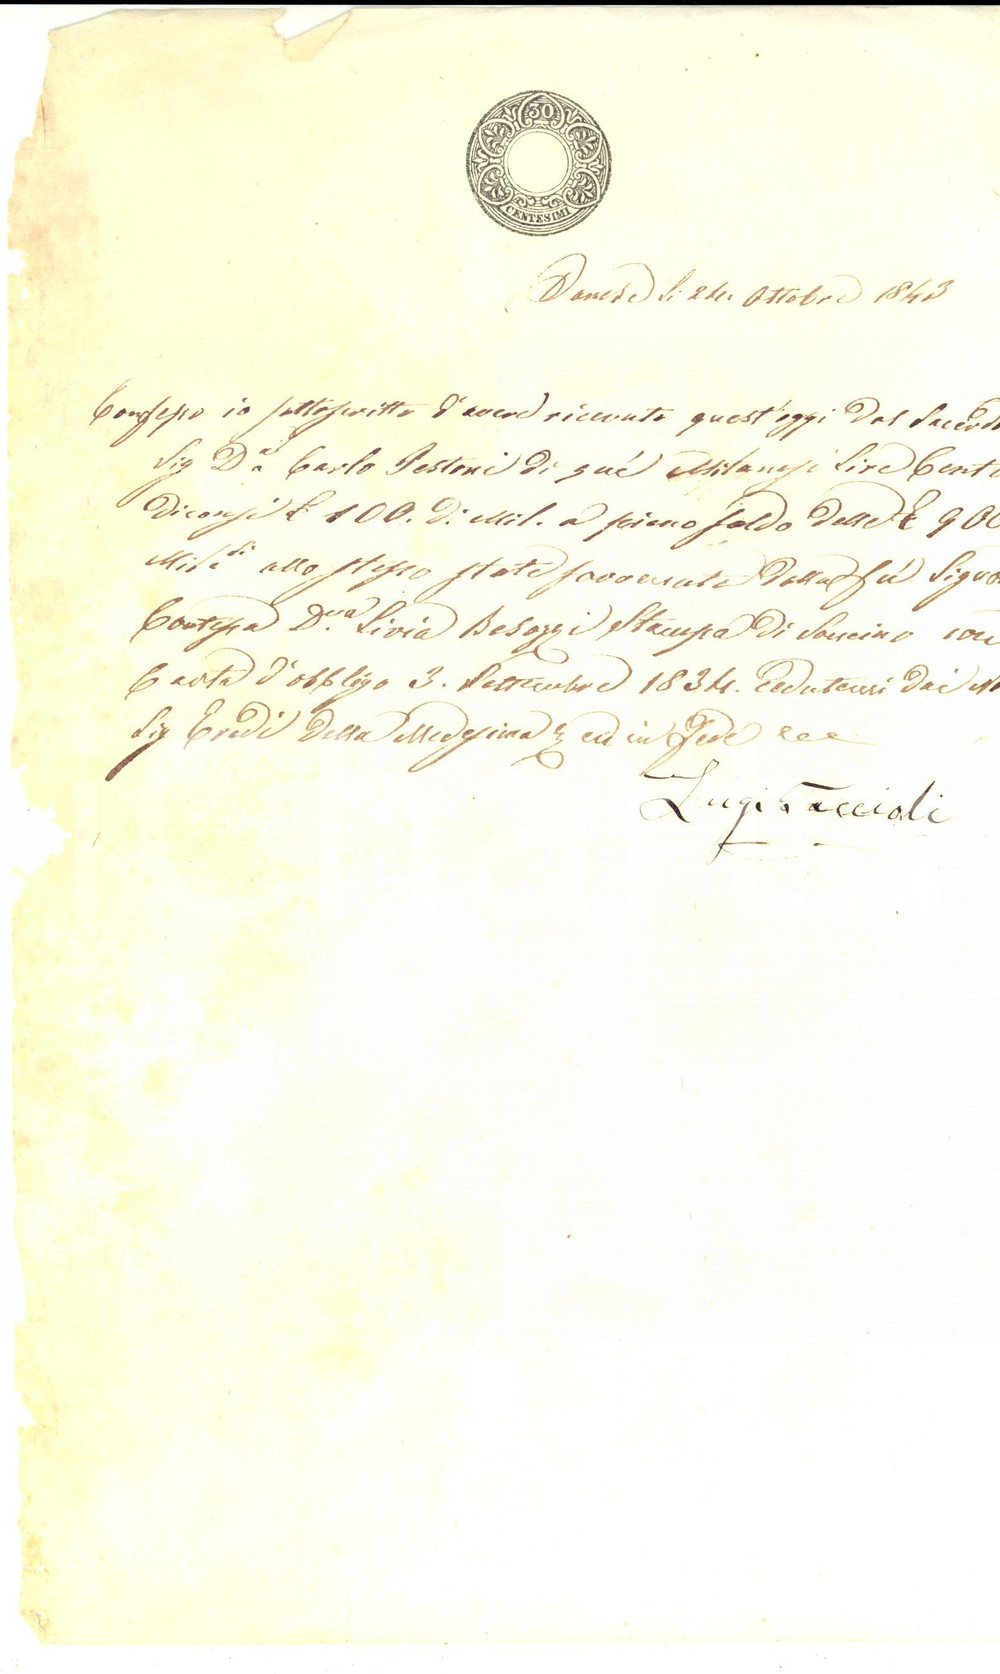 30
CENTESIMI
Varese li 24. Ottobre 1843
Confesso io sottoscritto d'avere ricevute quest'oggi dal Sacerdo
Sig Dn Carlo Pestoni di quì Milanesi Lire Cento
diconsi £ 100. di Mil. a pieno saldo delle £ 900
Mil.si allo stesso state sovvenute dalla fù Signo
Contessa D.na Livia Besozzi Stampa di Soncino con
Carta d'obbligo 3. Settembre 1834. cedutemi dai
Sig Eredi della Medesima ed in Fede
Luigi Faccioli